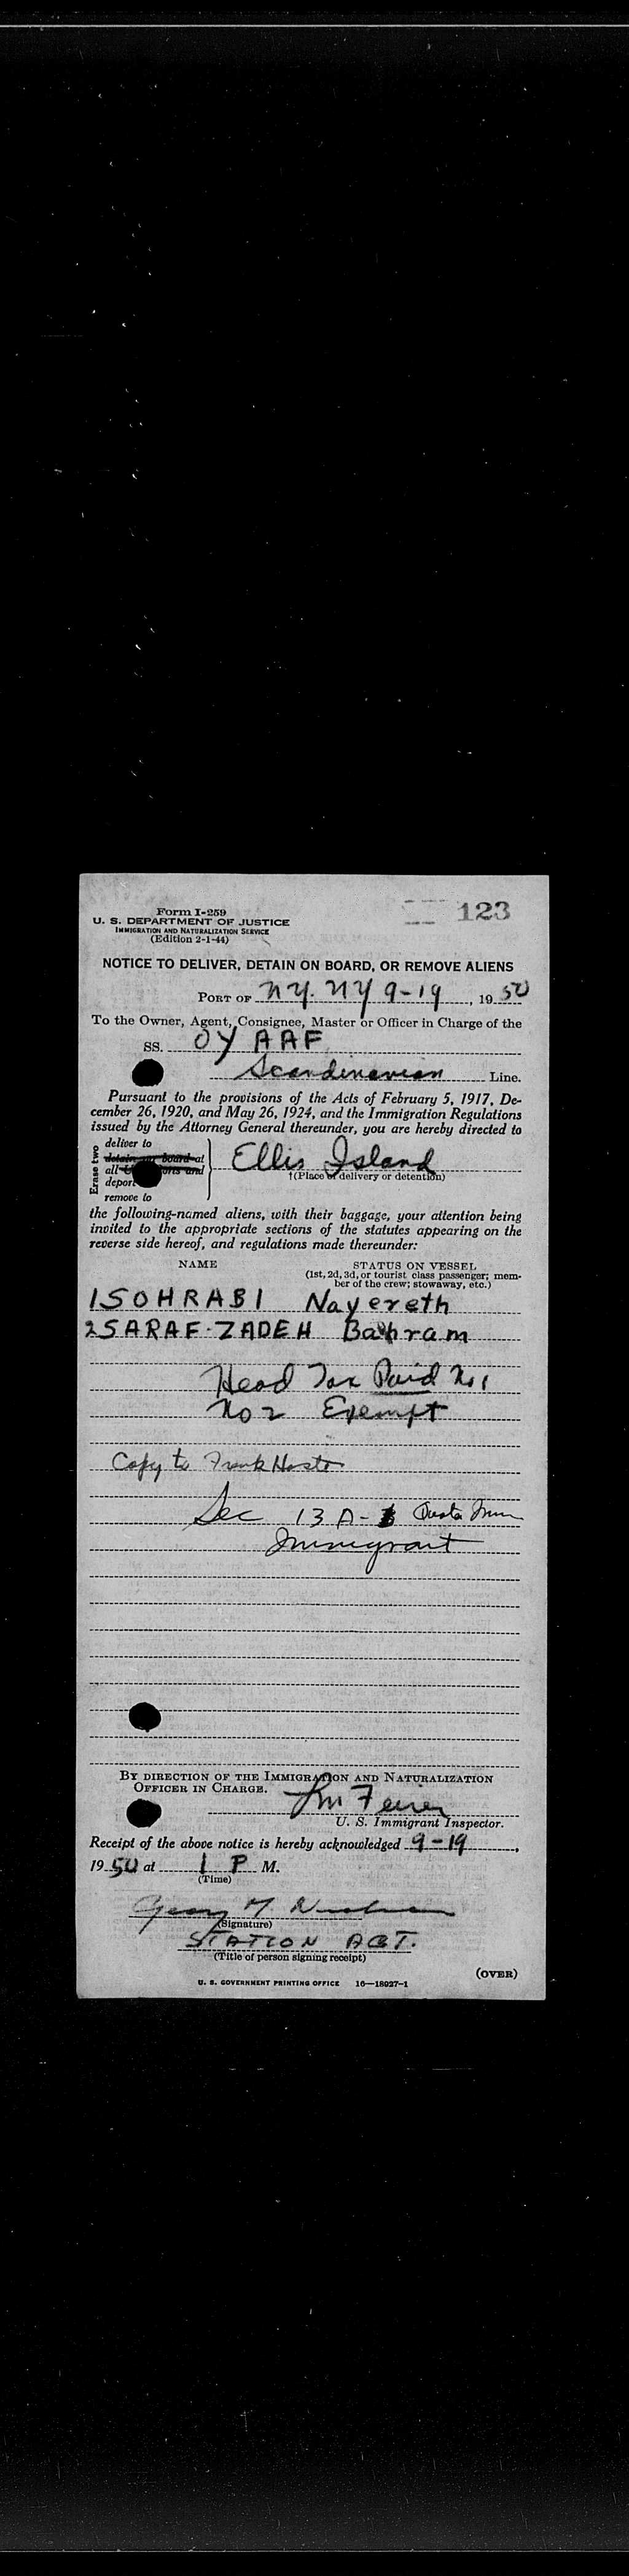 Form I-259
U. S. DEPARTMENT OF JUSTICE
IMMIGRATION AND NATURALIZATION SERVICE
(Edition 2-1-44)
123
NOTICE TO DELIVER, DETAIN ON BOARD, OR REMOVE ALIENS
PORT OF N.Y. NY 9-19, 1950
To the Owner, Agent, Consignee, Master or Officer in Charge of the
SS. OY AAF
Scandinavian Line.
Pursuant to the provisions of the Acts of February 5, 1917, De-
cember 26, 1920, and May 26, 1924, and the Immigration Regulations
issued by the Attorney General thereunder, you are hereby directed to
Erase two
deliver to
detain on board at
all and
deport
remove to
Ellis Island
†(Place of delivery or detention)
the following-named aliens, with their baggage, your attention being
invited to the appropriate sections of the statutes appearing on the
reverse side hereof, and regulations made thereunder:
NAME STATUS ON VESSEL
(1st, 2d, 3d, or tourist class passenger; mem-
ber of the crew; stowaway, etc.)
1 SOHRABI Nayereth
2 SARAF-ZADEH Bahram
Head Tax Paid No 1
No 2 Exempt
Copy to Frank
Sec 13 A- Quota
Immigrant
BY DIRECTION OF THE IMMIGRATION AND NATURALIZATION
OFFICER IN CHARGE.
U. S. Immigrant Inspector.
Receipt of the above notice is hereby acknowledged 9-19,
1950 at 1 P M.
(Time)
(Signature)
STATION AGT.
(Title of person signing receipt)
(OVER)
U. S. GOVERNMENT PRINTING OFFICE 16—18927-1